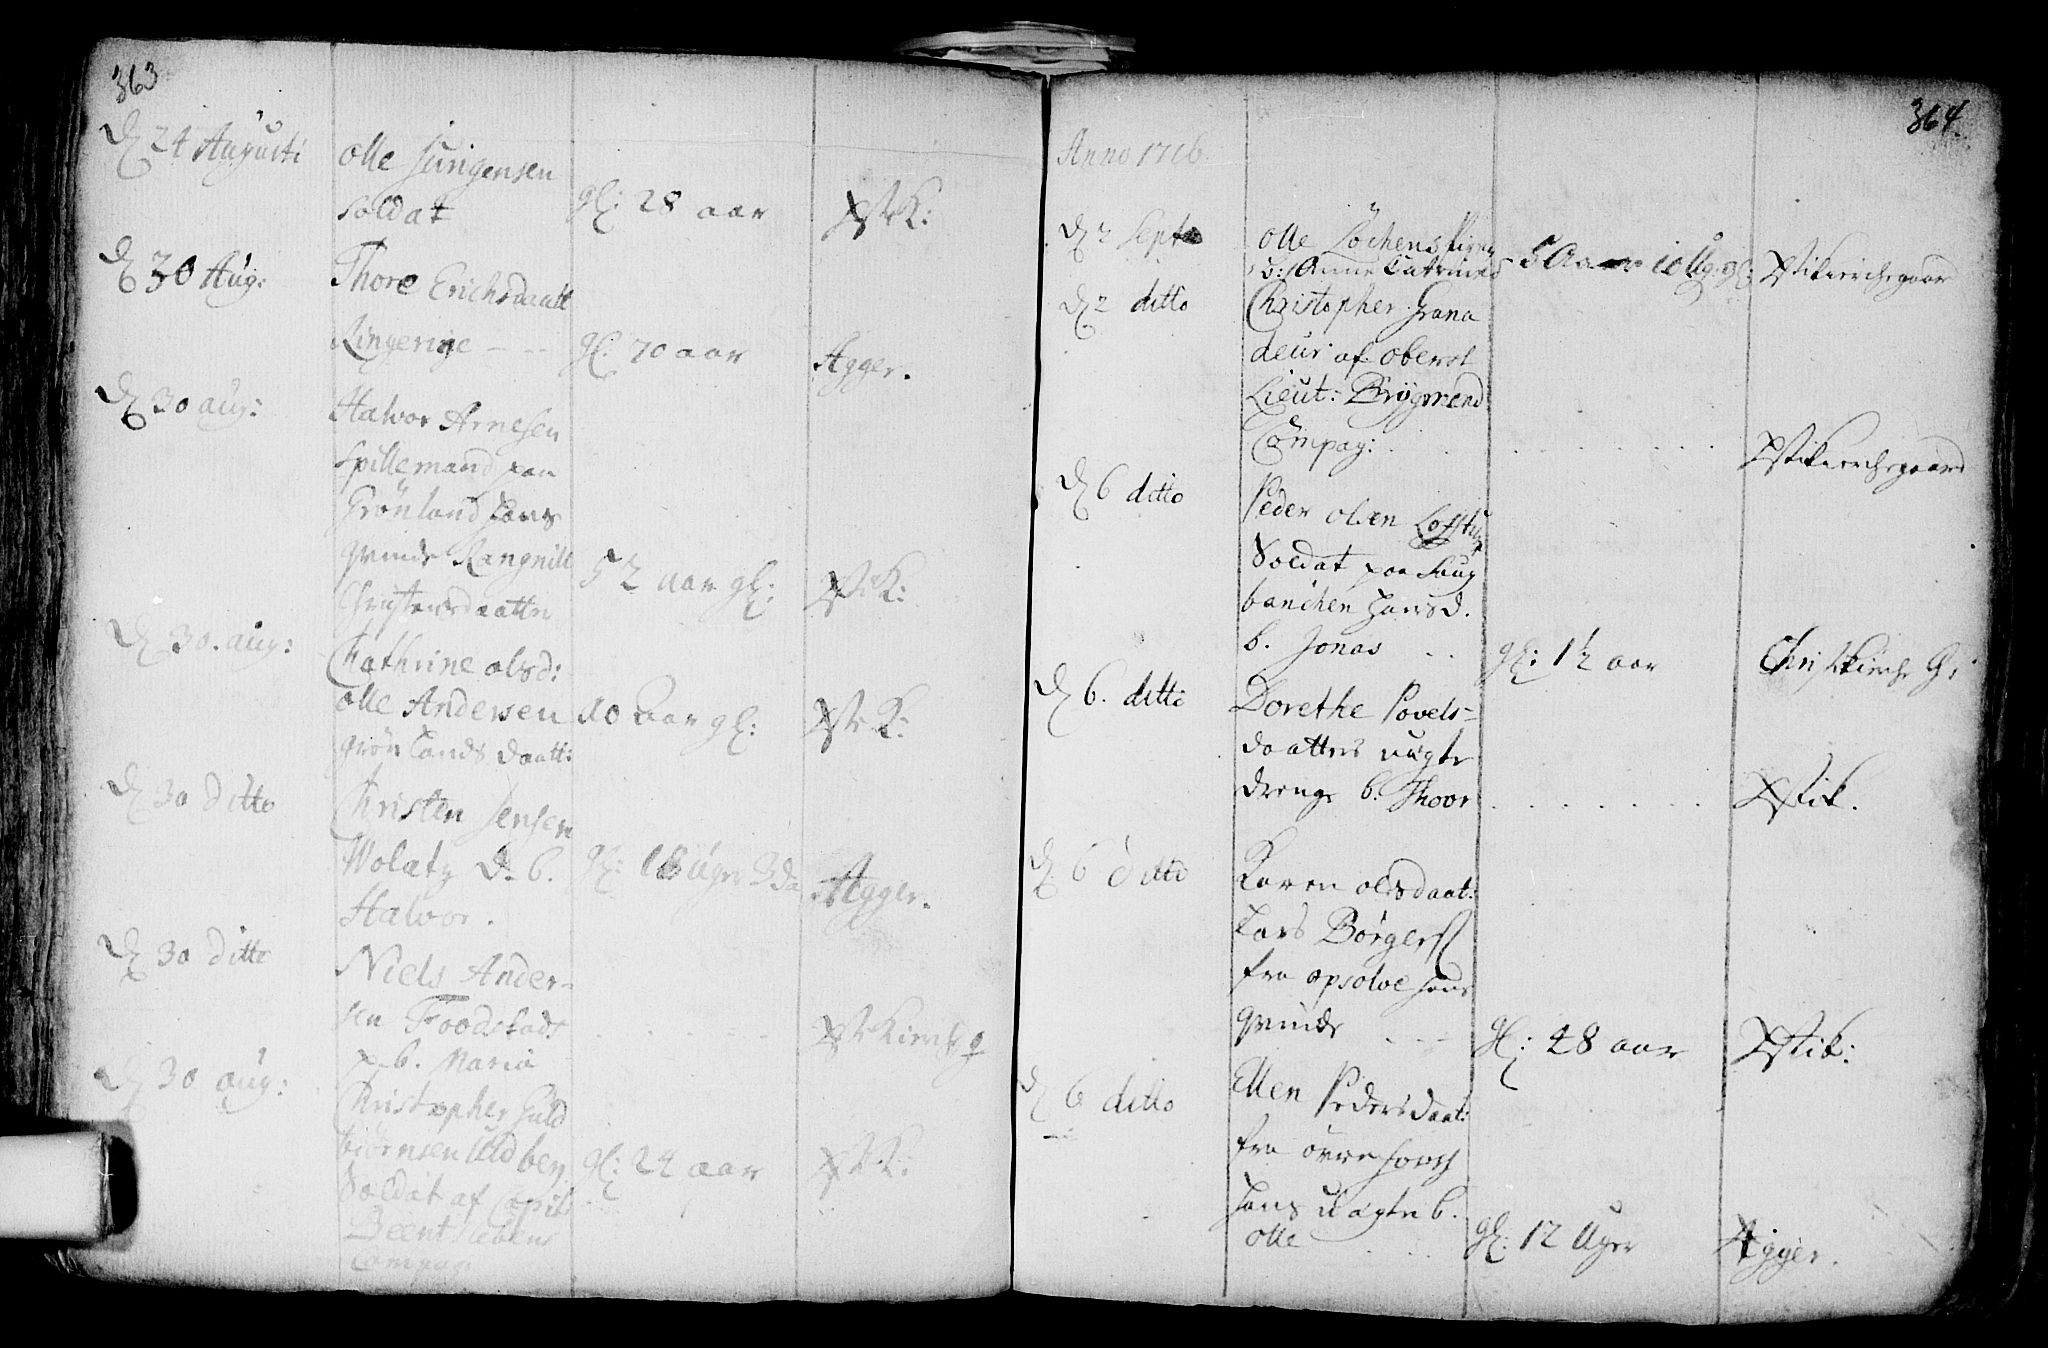 363
D 24 Augusti
olle Jurigensen
soldat
gl: 28 aar
XstK:
D 30 Aug:
Thore Erichsdaatt
Ringerige - - -
gl: 70 aar
Agger.
D 30 aug:
Halvor Arnesen
Spillemand paa
Grönland hans
qvinde Rangnill
Christensdaatter
52 aar gl:
XstK:
D 30. aug:
Chathrine olsd:
olle Andersen
grönlands daatt:
10 aar gl:
XstK:
D 30 ditto
Christen Jensen
D. b.
Halvor.
gl: 18 Uger 3 da
Agger.
D 30 ditto
Niels Ander-
sen
p. b. Maria
Xst Kirche g
D 30 aug:
Christopher Guld
biörnsen
Soldat af Capit:
Compag
gl: 24 aar
XstK:
364.
Anno 1716.
D 2 Sept
olle
b: Anne Catrine
5 Aar 10 Ug. gl:
Xstikirchegaar
D 2 ditto
Christopher Grana
deur af oberst
Lieut: Brygmend
Compag: . . .
Xstikirchegaard
D 6 ditto
Peder olsen
Soldat paa Saug
banchen hans d.
b. Jonas . .
gl: 1½ aar
Christkirche G:
D 6. ditto
Dorethe Povels-
daatters uægte
drenge b. Thoor
Xstik.
D 6 ditto
Karen olsdaat:
Lars Börgers
fra opsolve hans
qvinde . . .
gl: 48 aar
Xstik:
D 6 ditto
Ellen Pedersdaat:
fra
hans uægte b.
olle . . .
gl: 12 Uger
Agger.